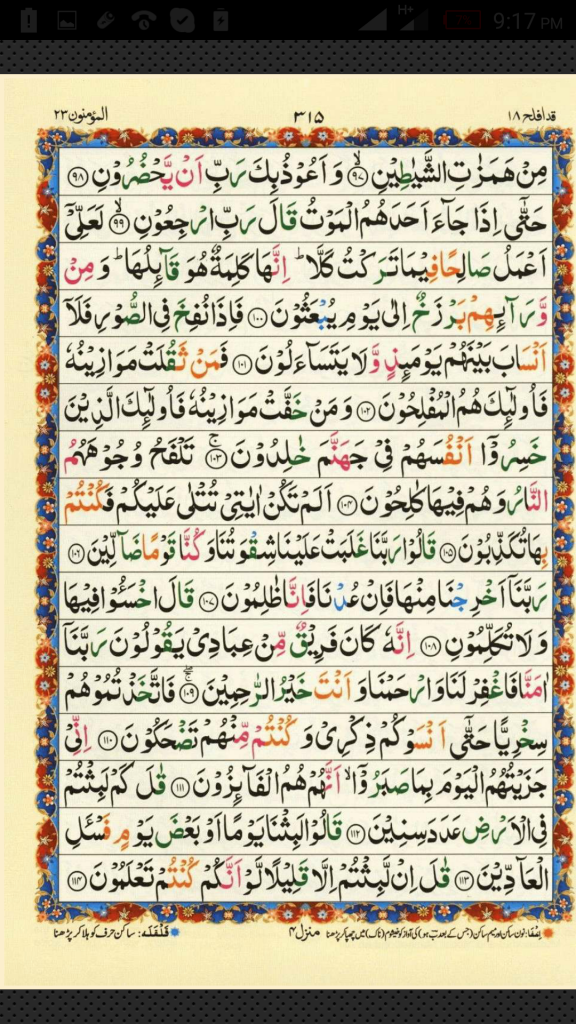 H+ 9:17 PM
قد افلح ۱۸ ۳۱۵ المؤمنون ۲۳
مِنْ هَمَزٰتِ الشَّيٰطِيْنِ ۙ‏﴿۹۷﴾ وَ اَعُوْذُ بِكَ رَبِّ اَنْ يَّحْضُرُوْنِ ﴿۹۸﴾
حَتّٰٓى اِذَا جَآءَ اَحَدَهُمُ الْمَوْتُ قَالَ رَبِّ ارْجِعُوْنِ ۙ‏﴿۹۹﴾ لَعَلِّىْٓ
اَعْمَلُ صَالِحًا فِيْمَا تَرَكْتُ كَلَّا ؕ اِنَّهَا كَلِمَةٌ هُوَ قَآئِلُهَا ؕ وَ مِنْ
وَّرَآئِهِمْ بَرْزَخٌ اِلٰى يَوْمِ يُبْعَثُوْنَ ﴿۱۰۰﴾ فَاِذَا نُفِخَ فِى الصُّوْرِ فَلَاۤ
اَنْسَابَ بَيْنَهُمْ يَوْمَئِذٍ وَّ لَا يَتَسَآءَلُوْنَ ﴿۱۰۱﴾ فَمَنْ ثَقُلَتْ مَوَازِيْنُهٗ
فَاُولٰٓئِكَ هُمُ الْمُفْلِحُوْنَ ﴿۱۰۲﴾ وَ مَنْ خَفَّتْ مَوَازِيْنُهٗ فَاُولٰٓئِكَ الَّذِيْنَ
خَسِرُوْۤا اَنْفُسَهُمْ فِىْ جَهَنَّمَ خٰلِدُوْنَ ۚ‏﴿۱۰۳﴾ تَلْفَحُ وُجُوْهَهُمُ
النَّارُ وَ هُمْ فِيْهَا كٰلِحُوْنَ ﴿۱۰۴﴾ اَلَمْ تَكُنْ اٰيٰتِىْ تُتْلٰى عَلَيْكُمْ فَكُنْتُمْ
بِهَا تُكَذِّبُوْنَ ﴿۱۰۵﴾ قَالُوْا رَبَّنَا غَلَبَتْ عَلَيْنَا شِقْوَتُنَا وَ كُنَّا قَوْمًا ضَآلِّيْنَ ﴿۱۰۶﴾
رَبَّنَاۤ اَخْرِجْنَا مِنْهَا فَاِنْ عُدْنَا فَاِنَّا ظٰلِمُوْنَ ﴿۱۰۷﴾ قَالَ اخْسَـُٔوْا فِيْهَا
وَ لَا تُكَلِّمُوْنِ ﴿۱۰۸﴾ اِنَّهٗ كَانَ فَرِيْقٌ مِّنْ عِبَادِىْ يَقُوْلُوْنَ رَبَّنَاۤ
اٰمَنَّا فَاغْفِرْ لَنَا وَ ارْحَمْنَا وَ اَنْتَ خَيْرُ الرّٰحِمِيْنَ ۖۚ‏﴿۱۰۹﴾ فَاتَّخَذْتُمُوْهُمْ
سِخْرِيًّا حَتّٰٓى اَنْسَوْكُمْ ذِكْرِىْ وَ كُنْتُمْ مِّنْهُمْ تَضْحَكُوْنَ ﴿۱۱۰﴾ اِنِّىْ
جَزَيْتُهُمُ الْيَوْمَ بِمَا صَبَرُوْۤا ۙ اَنَّهُمْ هُمُ الْفَآئِزُوْنَ ﴿۱۱۱﴾ قٰلَ كَمْ لَبِثْتُمْ
فِى الْاَرْضِ عَدَدَ سِنِيْنَ ﴿۱۱۲﴾ قَالُوْا لَبِثْنَا يَوْمًا اَوْ بَعْضَ يَوْمٍ فَسْـَٔلِ
الْعَآدِّيْنَ ﴿۱۱۳﴾ قٰلَ اِنْ لَّبِثْتُمْ اِلَّا قَلِيْلًا لَّوْ اَنَّكُمْ كُنْتُمْ تَعْلَمُوْنَ ﴿۱۱۴﴾
اِخفا: نون ساکن اور میم ساکن (جس کے بعد ب ہو) کی آواز کو خیشوم (ناک) میں چھپا کر پڑھنا منزل ۴ قلقلہ: ساکن حرف کو ہلا کر پڑھنا